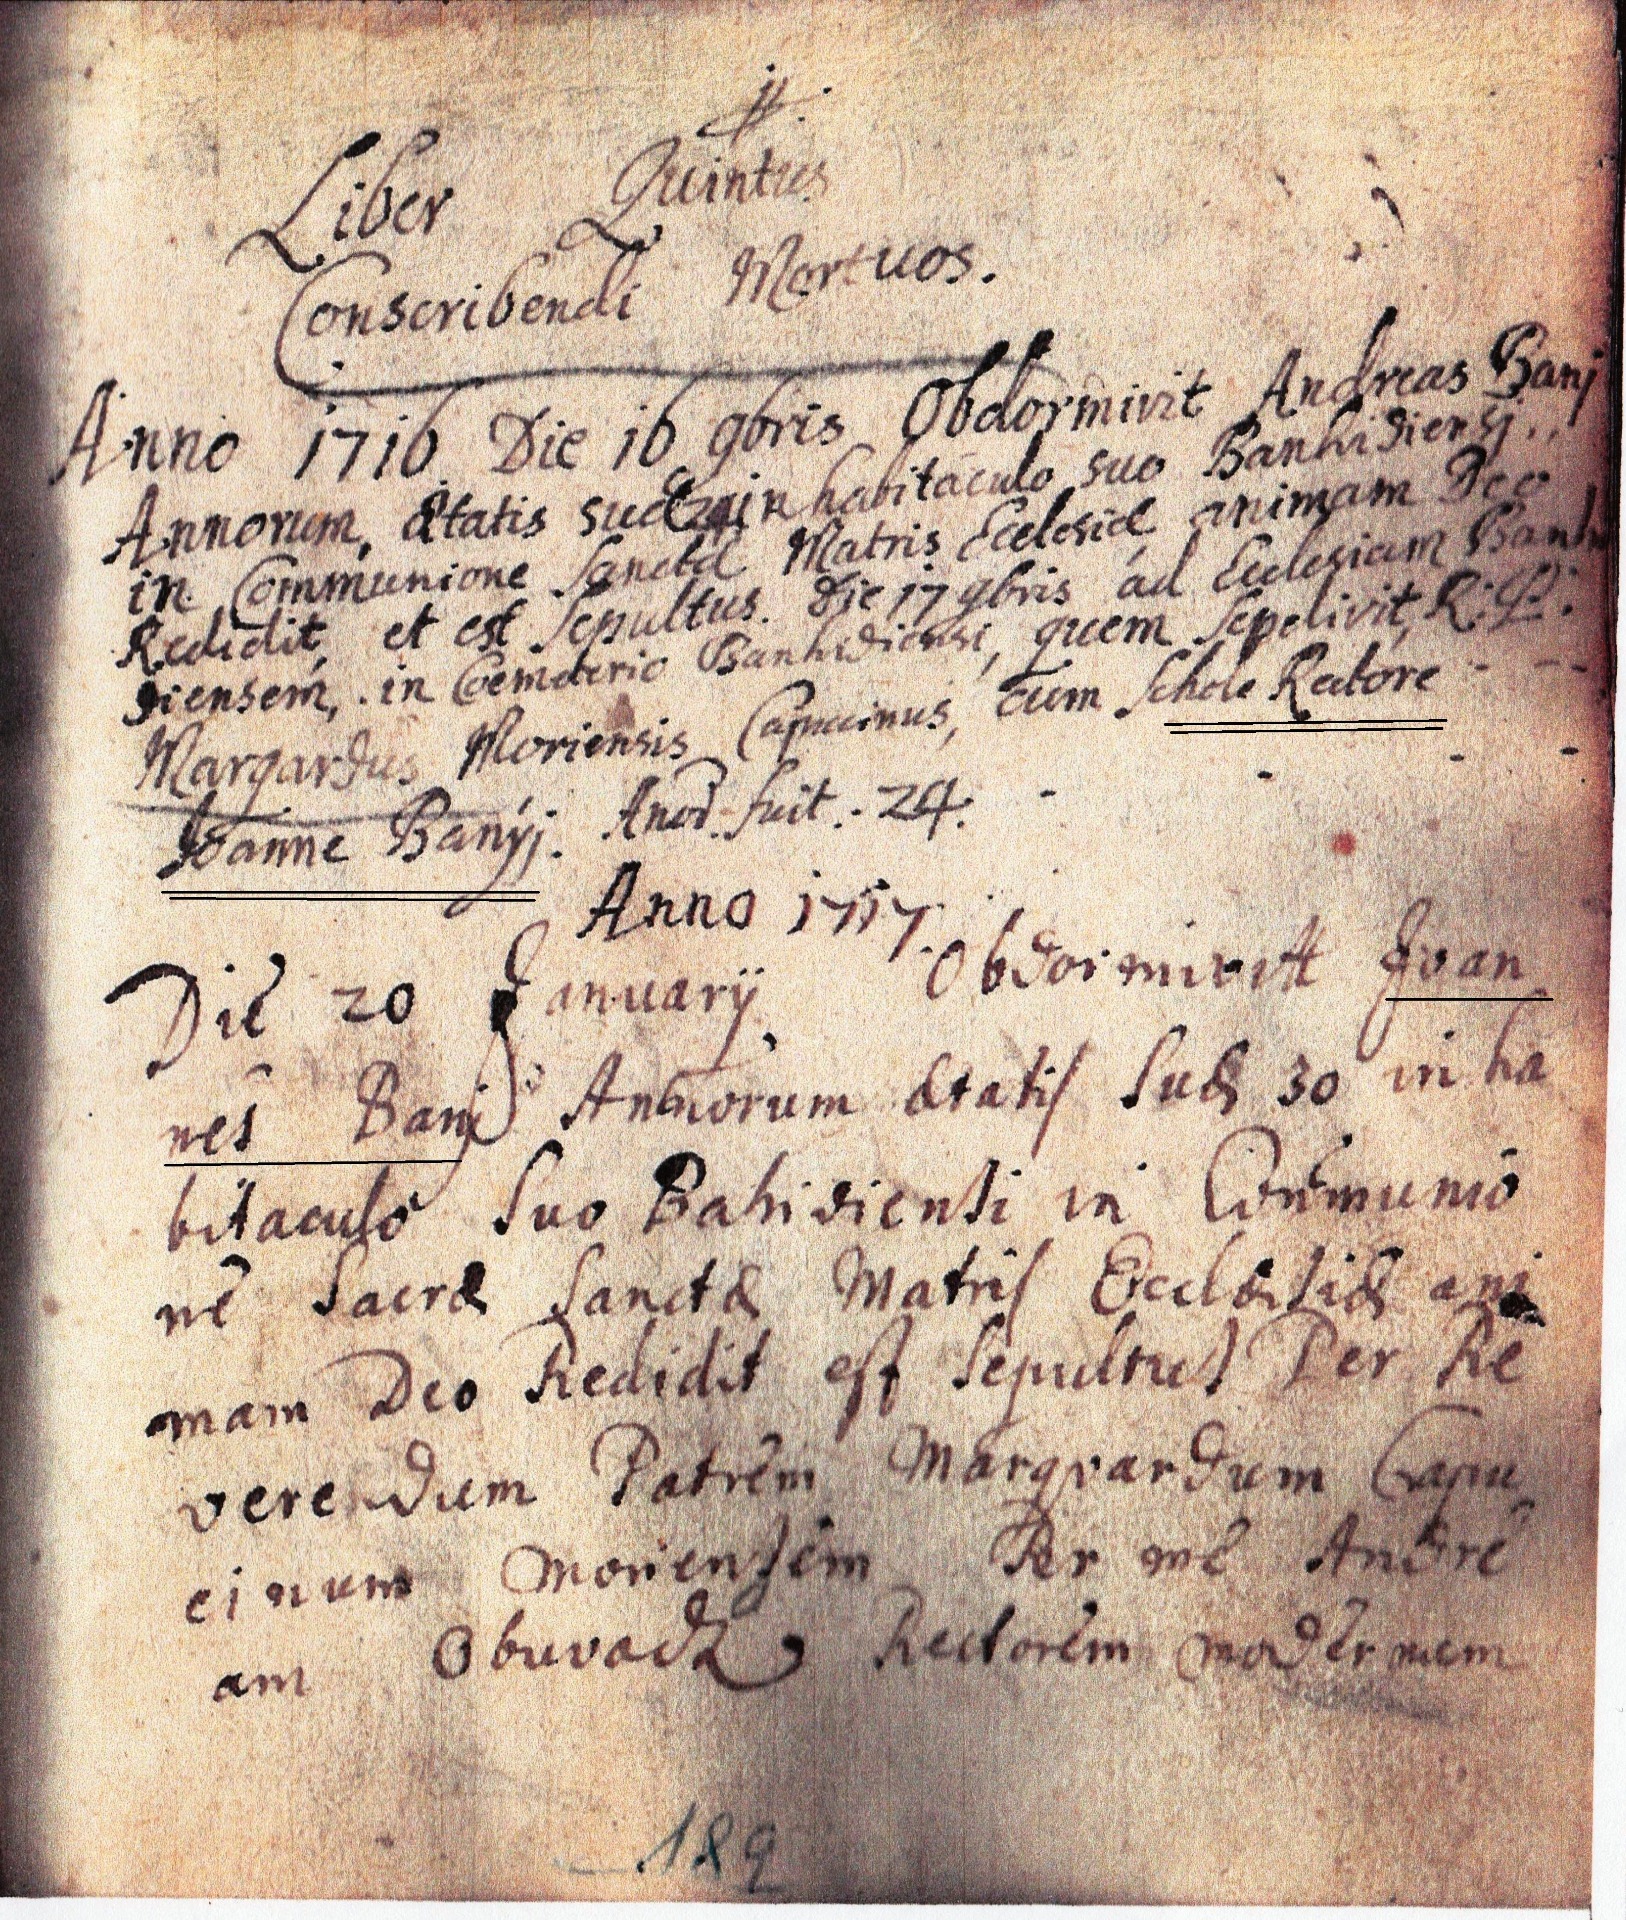 Liber Quintus
Conscribendi Mortuos.
Anno 1716 Die 16 9bris Obdormivit Andreas Banj
Annorum, ætatis suæ 24 in habitaculo suo Banhidiensj..
in Communione Sanctæ Matris Ecclesiæ animam Deo
Redidit, et est Sepultus. Die 17 9bris ad Ecclesiam Banhi
diensem, in Coemeterio Banhidiensi, quem Sepelivit, R: P:
Marqardus Moriensis Capucinus, cum Schole Rectore
Joanne Banÿj. fuit. 24.
Anno 1717.
Die 20 Januarÿ Obdormivitt Joan
nes Banj Annorum ætatis Suæ 30 in ha
bitaculo Suo Bahidiensi in Communio
ne Sacræ Sanctæ Matris Ecclæsiæ ani
mam Deo Redidit est Sepultus Per Re
verendum Patrem Marqvardum Capu
cinum Moriensem Per me Andre
am Obuvadz Rectorem modernum
189